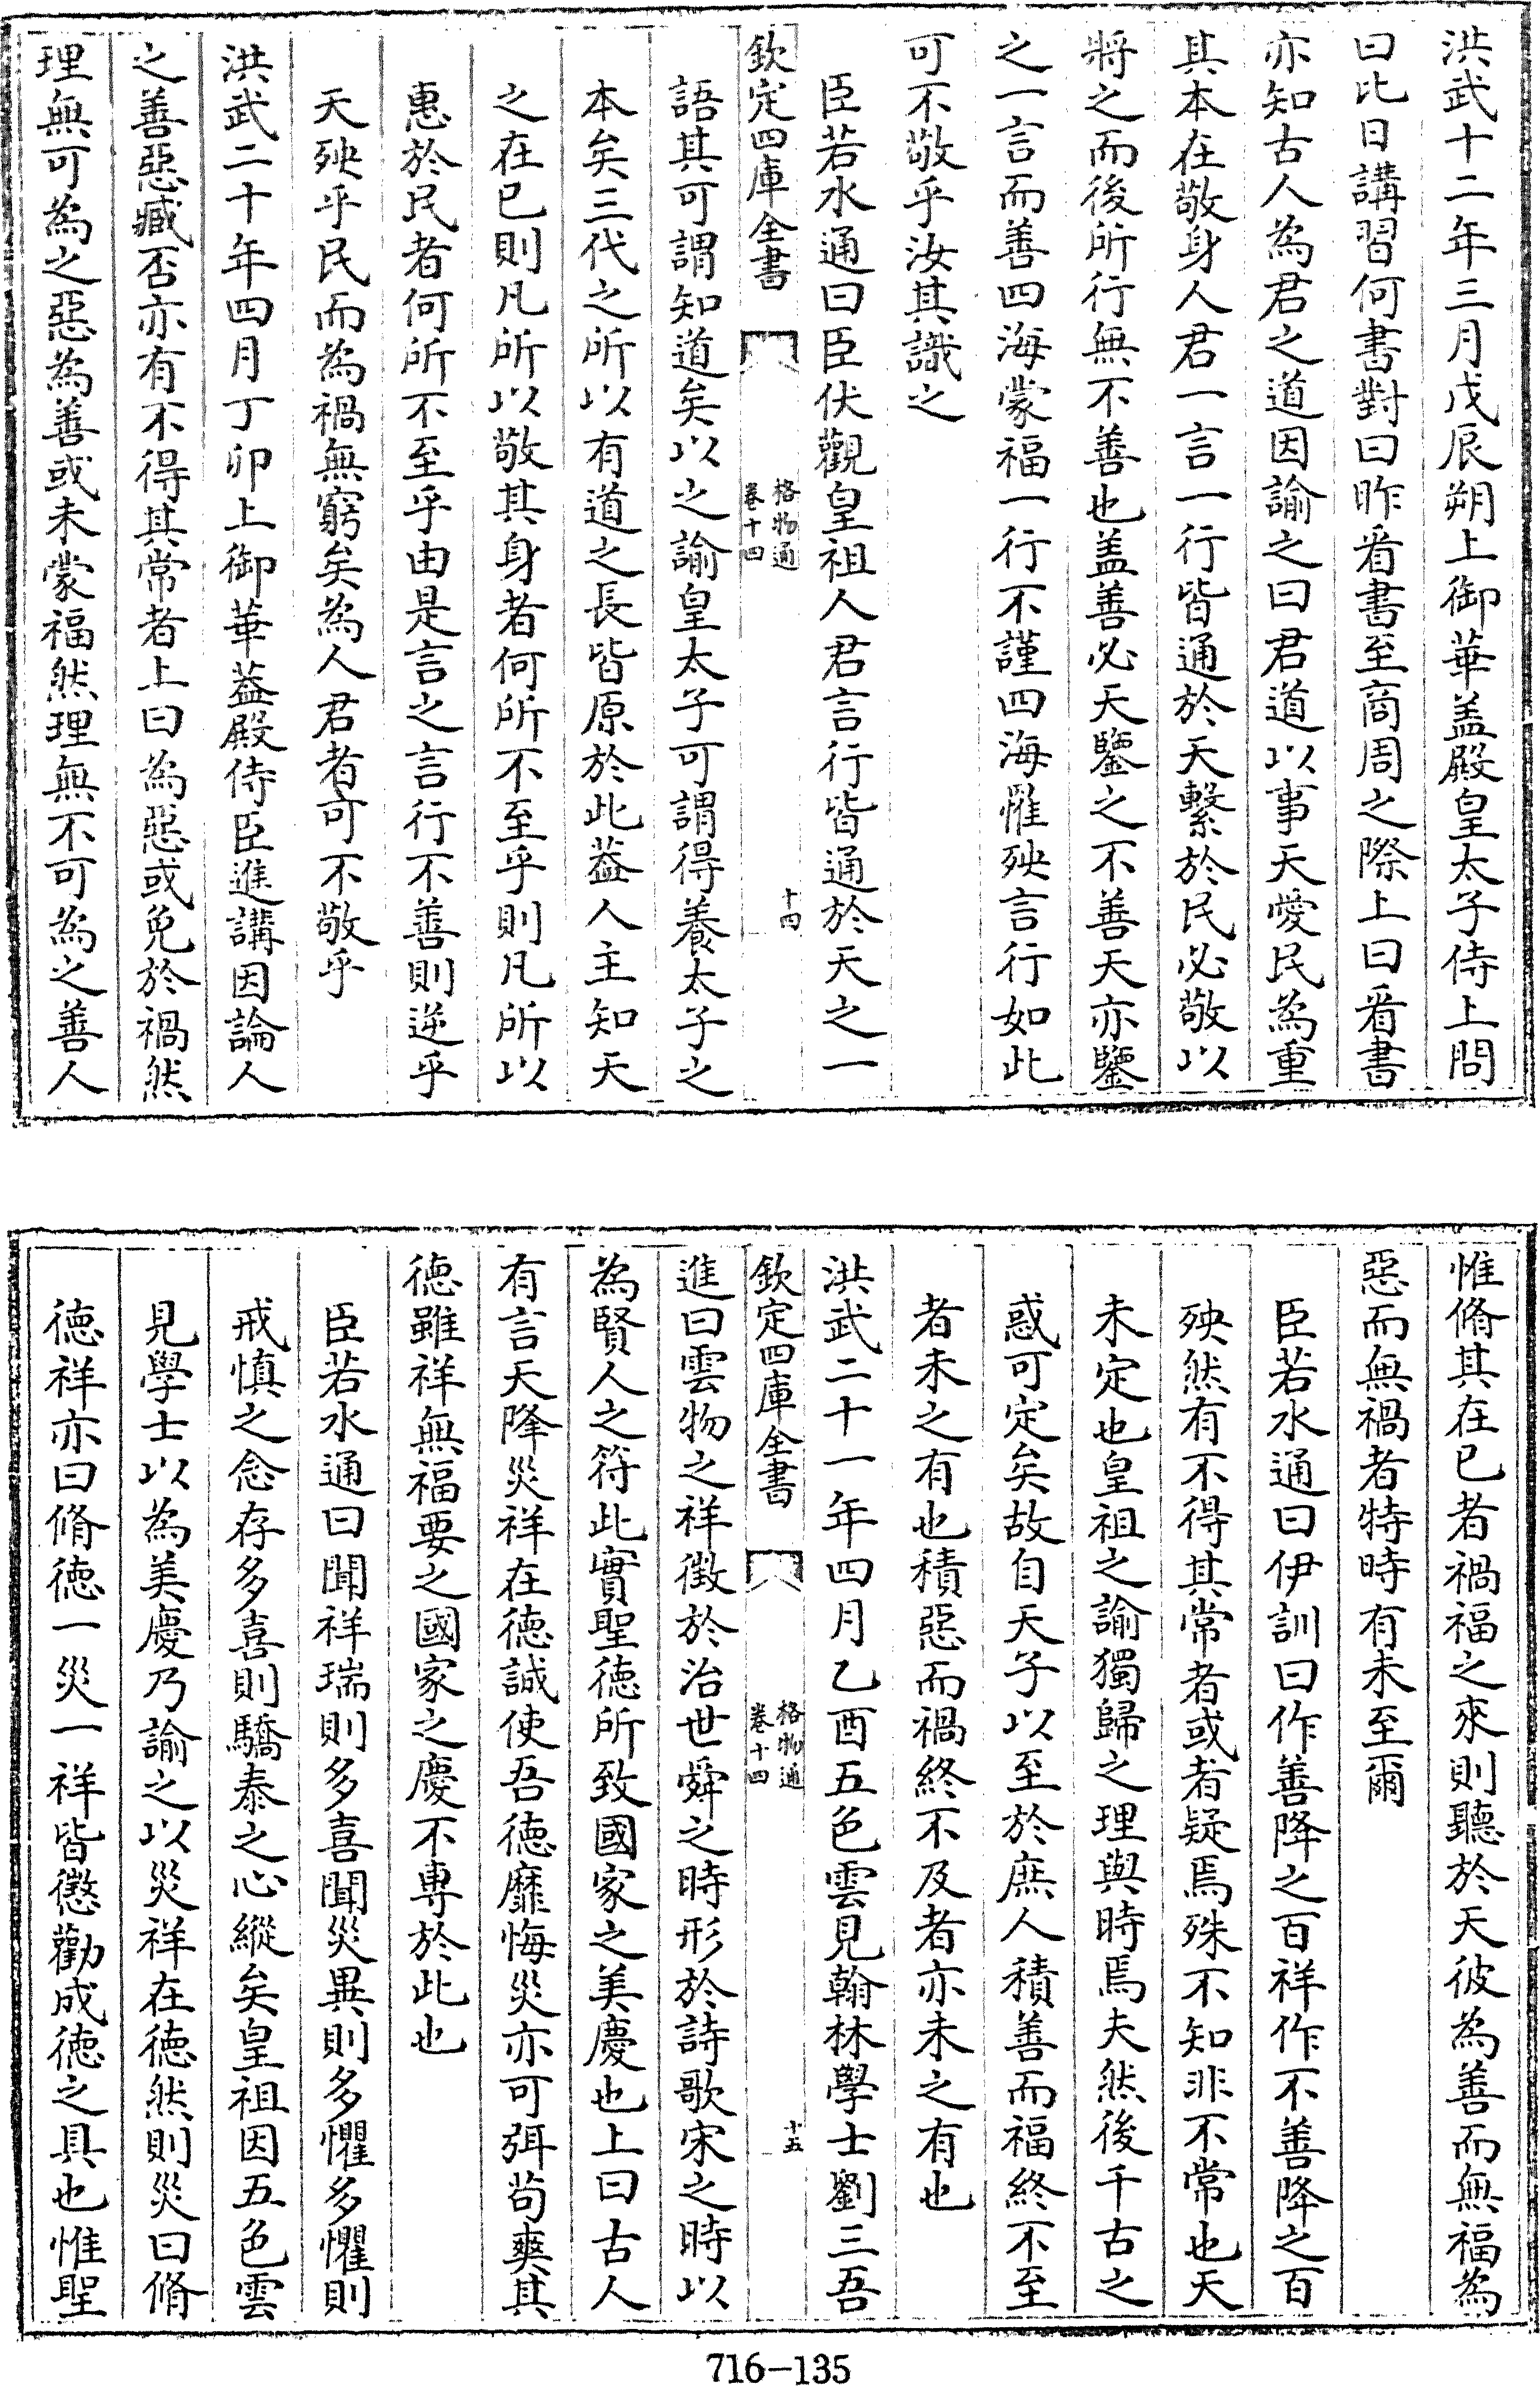 洪武十二年三月戊辰朔上御華盖殿皇太子侍上問
曰比日講習何書對曰昨㸔書至商周之際上曰㸔書
亦知古人為君之道因諭之曰君道以事天愛民為重
其本在敬身人君一言一行皆通於天繫於民必敬以
將之而後所行無不善也盖善必天鑒之不善天亦鑒
之一言而善四海蒙福一行不謹四海罹殃言行如此
可不敬乎汝其識之
臣若水通曰臣伏觀皇祖人君言行皆通於天之一
欽定四庫全書
格物通
卷十四
十四
語其可謂知道矣以之諭皇太子可謂得養太子之
本矣三代之所以有道之長皆原於此葢人主知天
之在已則凡所以敬其身者何所不至乎則凡所以
惠於民者何所不至乎由是言之言行不善則逆乎
天殃乎民而為禍無窮矣為人君者可不敬乎
洪武二十年四月丁卯上御華葢殿侍臣進講因論人
之善惡臧否亦有不得其常者上曰為惡或免於禍然
理無可為之惡為善或未蒙福然理無不可為之善人
惟脩其在已者禍福之來則聽於天彼為善而無福為
惡而無禍者特時有未至爾
臣若水通曰伊訓曰作善降之百祥作不善降之百
殃然有不得其常者或者疑焉殊不知非不常也天
未定也皇祖之諭獨歸之理與時焉夫然後千古之
惑可定矣故自天子以至於庶人積善而福終不至
者未之有也積惡而禍終不及者亦未之有也
洪武二十一年四月乙酉五色雲見翰林學士劉三吾
欽定四庫全書
格物通
卷十四
十五
進曰雲物之祥徵於治世舜之時形於詩歌宋之時以
為賢人之符此實聖徳所致國家之美慶也上曰古人
有言天降災祥在徳誠使吾徳靡悔災亦可弭茍爽其
德雖祥無福要之國家之慶不專於此也
臣若水通曰聞祥瑞則多喜聞災異則多懼多懼則
戒慎之念存多喜則驕泰之心縱矣皇祖因五色雲
見學士以為美慶乃諭之以災祥在徳然則災曰脩
徳祥亦曰脩徳一災一祥皆懲勸成徳之具也惟聖
716-135